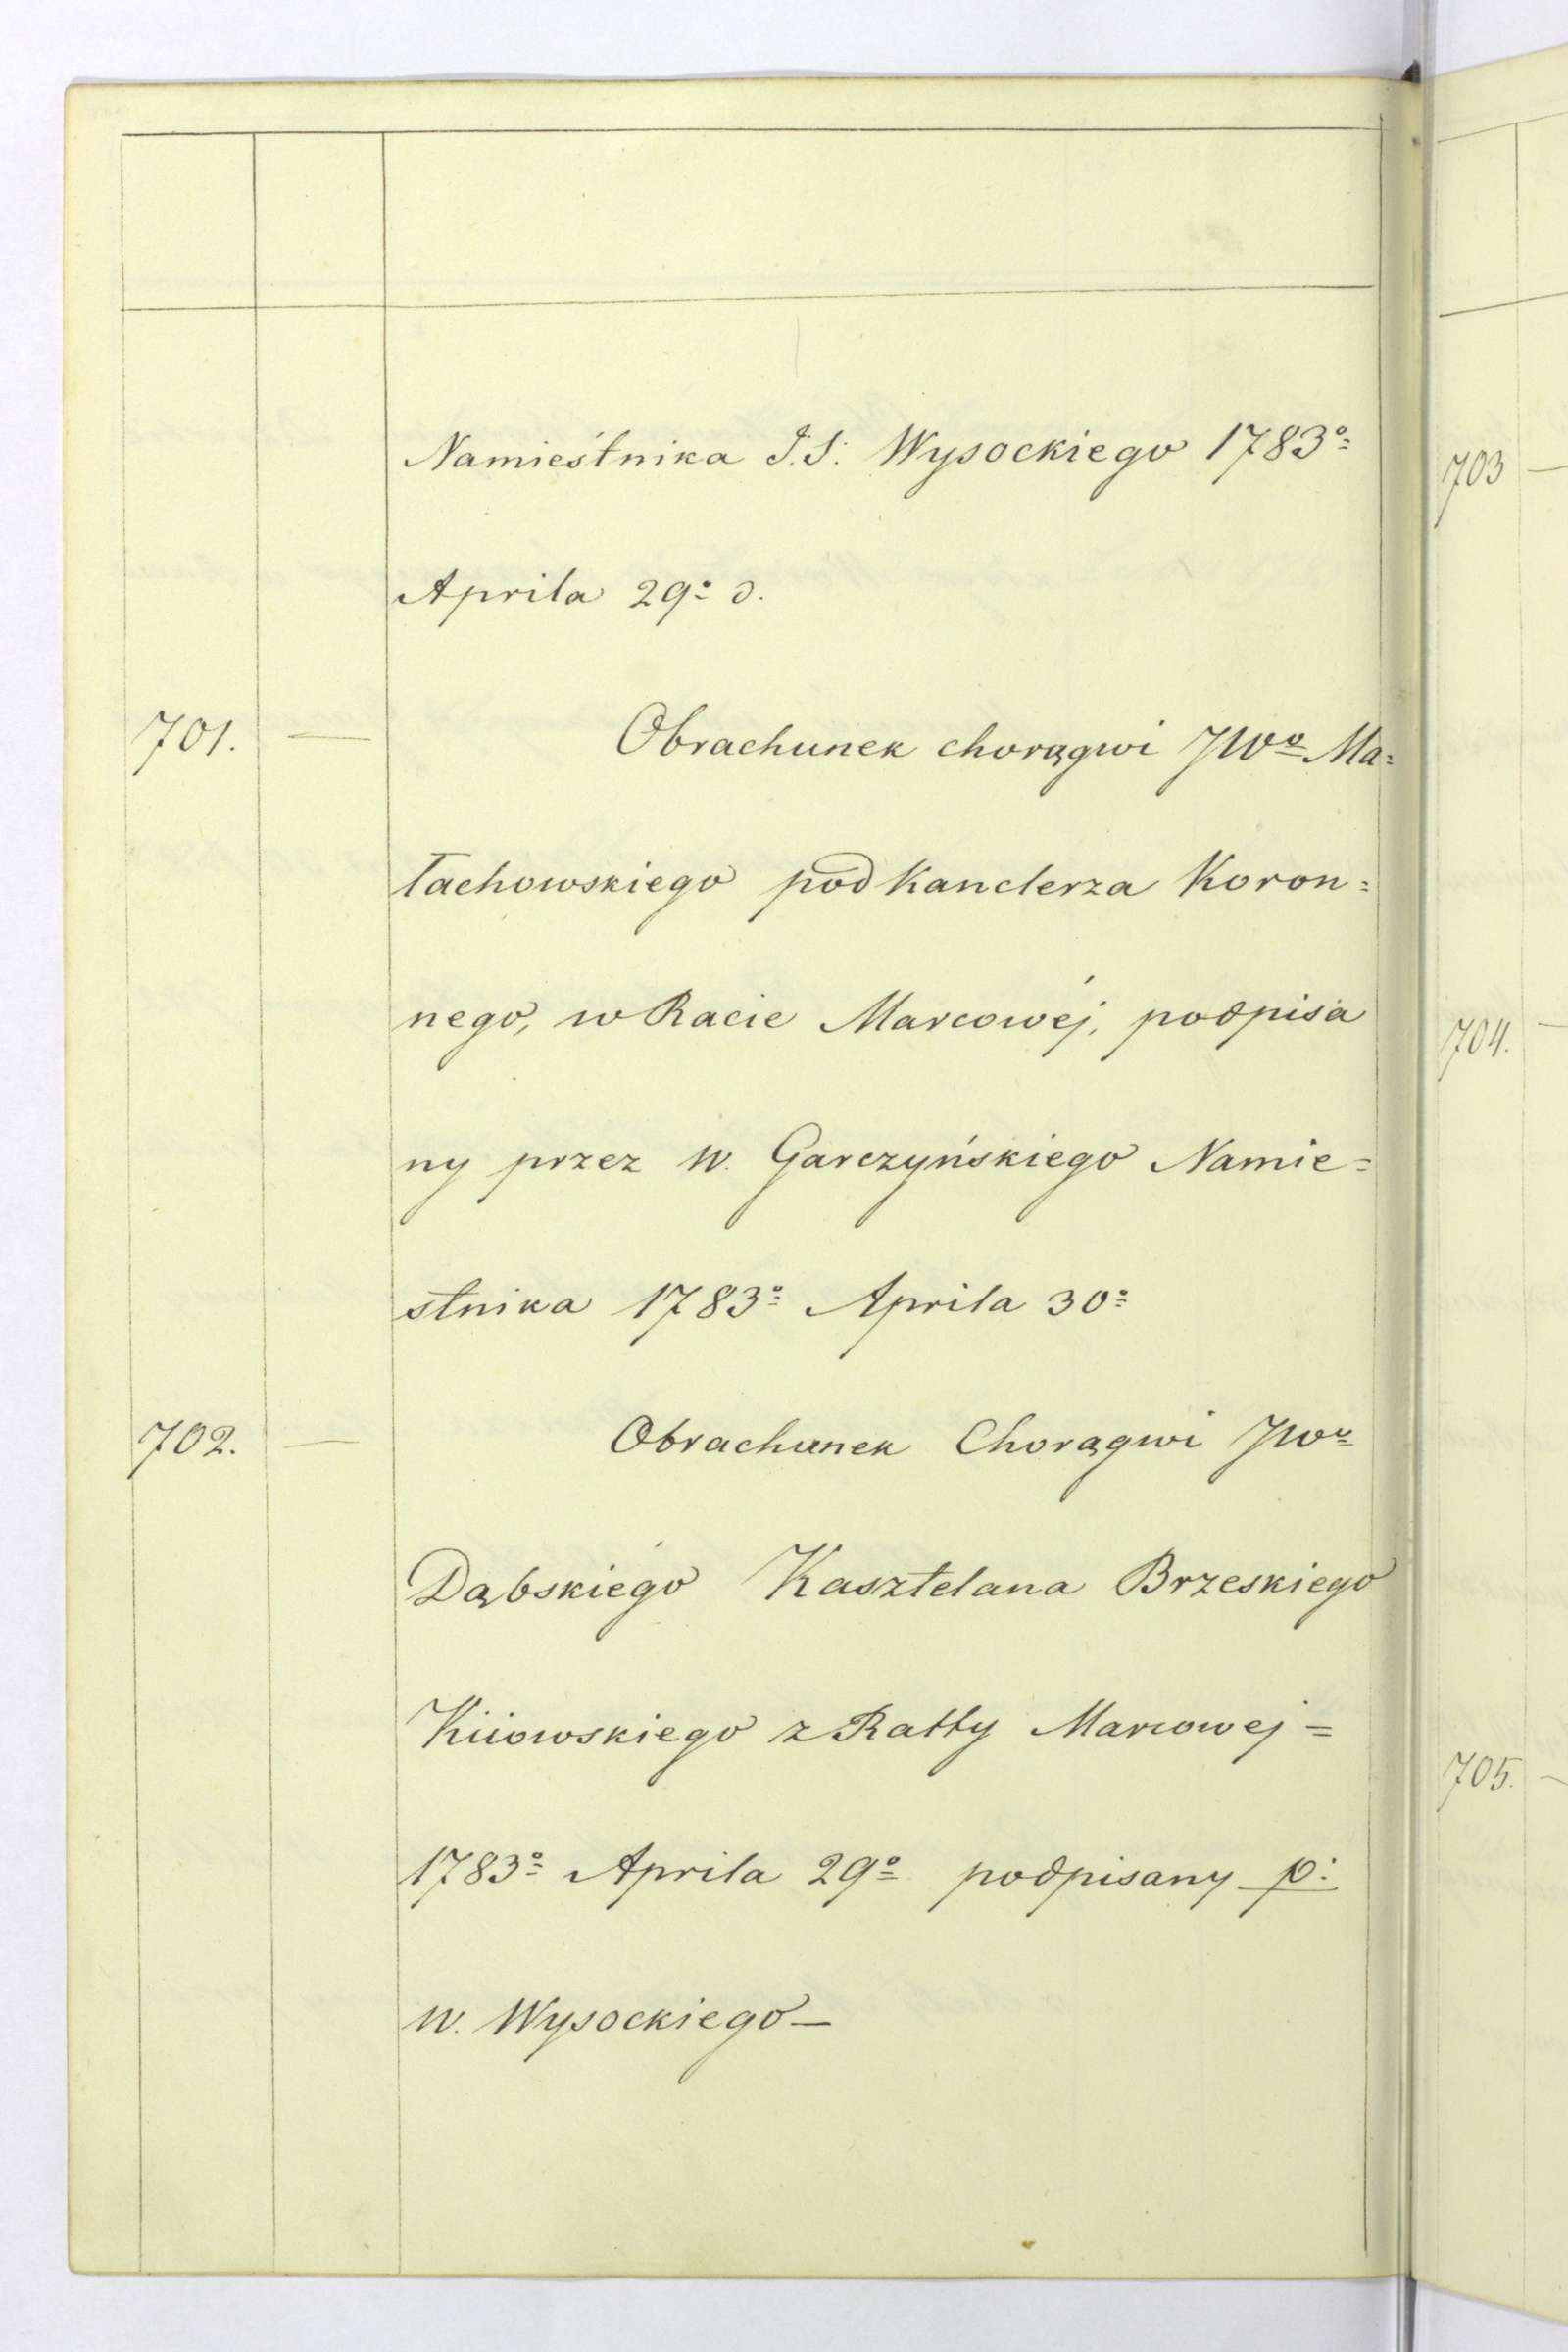 Namieśtnika J.S. Wysockiego 1783º
Aprila 29º d.
701. — Obrachunek chorągwi JWo Ma=
łachowskiego podKanclerza Koron=
nego, w Racie Marcowéj, podpisa
ny przez W. Garczyńskiego Namie=
stnika 1783º Aprila 30º
702. — Obrachunek Chorągwi JWo
Dąbskiego Kasztelana Brzeskiego
Kiiowskiego z Ratty Marcowej =
1783º Aprila 29º podpisany p:
W. Wysockiego —
703 —
704. —
705. —